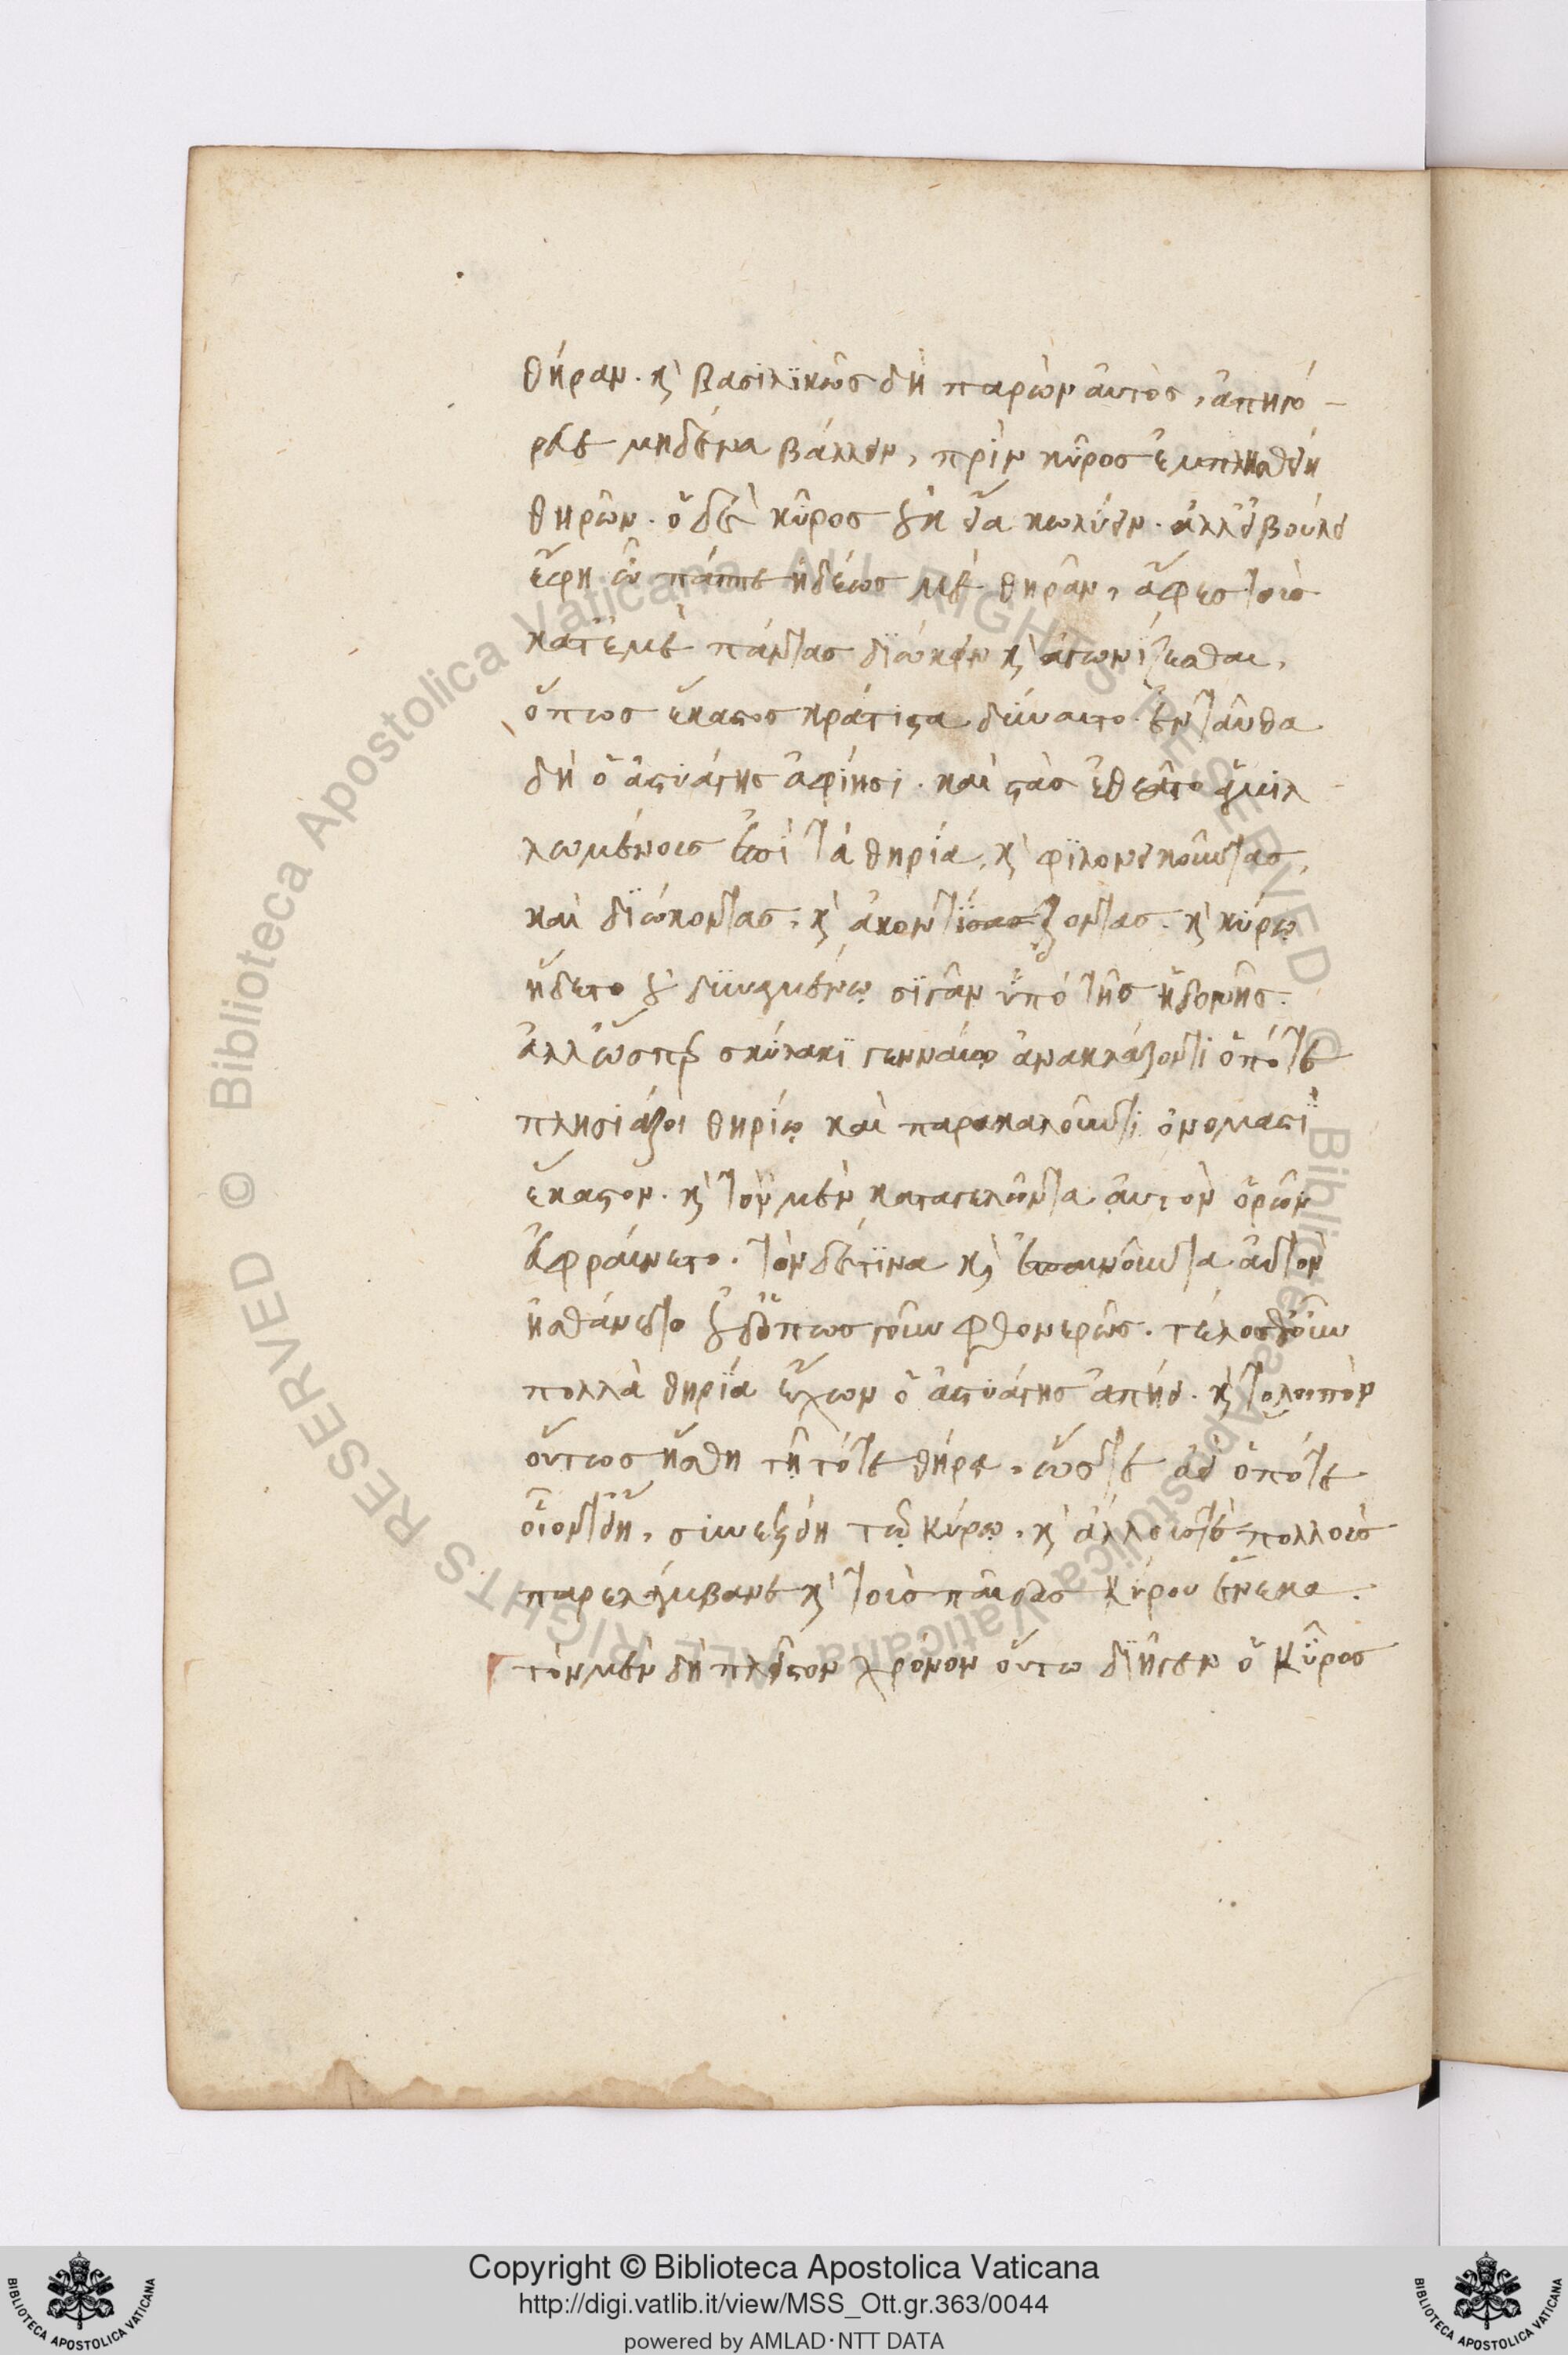 θήραν. κὶ βασιλϊκῶς δὴ παρὼν αὐτὸς, ἀπηγό-
ρευε μηδένα βάλλειν, πρὶν κῦρος ἐμπλησθείη
θηρῶν. ὁ δὲ κῦρος οὐκ εἴα κωλύειν. ἀλλ' εἰ βούλει
ἔφη ὦ πάππε ἡδέως με θηρᾶν, ἄφες τοὺς
κατ' ἐμὲ πάντας δϊώκειν κὶ ἀγωνίζεσθαι,
ὅπως ἕκαστος κράτιστα δύναιτο. ἐνταῦθα
δὴ ὁ ἀστυάγης ἀφίησι. καὶ στὰς ἐθεᾶτο ἁμιλ-
λωμένους ἐπὶ τὰ θηρία, κὶ φϊλονεικοῦντας,
καὶ δϊώκοντας, κὶ ἀκοντίζοντας. κὶ κύρῳ
ἥδετο οὐ δυναμένῳ σϊγᾶν ὑπὸ τῆς ἡδονῆς.
ἀλλ' ὥσπερ σκύλακϊ γενναίῳ ἀνακλάζοντι ὁπότε
πλησιάζοι θηρίῳ καὶ παρακαλοῦντι ὀνομαστὶ
ἕκαστον. κὶ τὸν μὲν καταγελῶντα αὐτὸν ὁρῶν
εὐφραίνετο. τὸν δέ τϊνα κὶ ἐπαινοῦντα αὐτὸν
ἠσθάνετο οὐδ' ὅπως τοῦν φθονερῶς. τέλος δ' οὖν
πολλὰ θηρϊα ἔχων ὁ ἀστυάγης ἀπῄει. κὶ τὸ λοιπὸν
οὕτως ἥσθη τῇ τότε θήρᾳ, ὥστε ἀεὶ ὁπότε
οἷόντ' εἴη, συνεξῄει τῷ κύρῳ, κὶ ἄλλους τε πολλοὺς
παρελάμβανε κὶ τοὺς παῖδας κύρου ἕνεκα.
τὸν μὲν δὴ πλεῖστον χρόνον οὕτω δϊῆγεν ὁ κῦρος
Copyright © Biblioteca Apostolica Vaticana
http://digi.vatlib.it/view/MSS_Ott.gr.363/0044
powered by AMLAD·NTT DATA